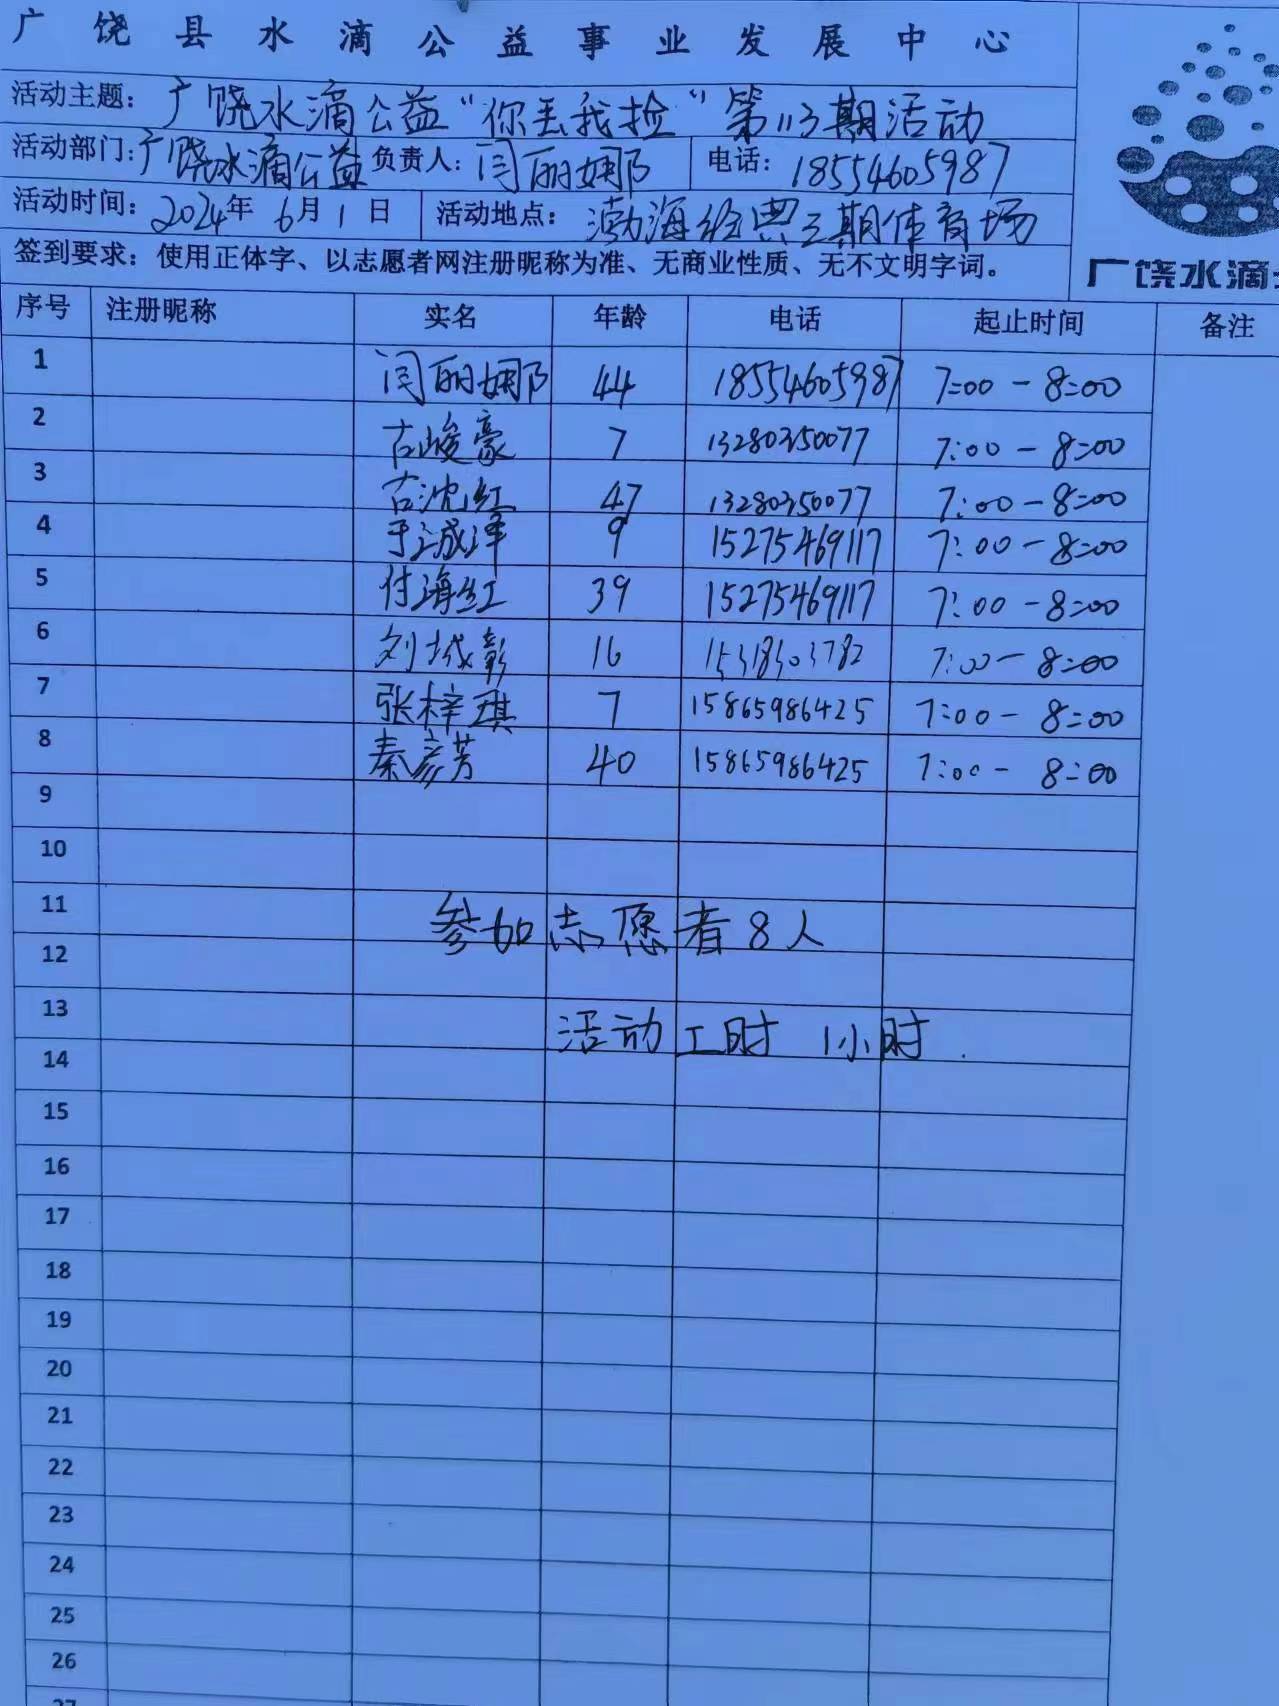 广饶县水滴公益事业发展中心
活动主题：广饶水滴公益“你丢我捡”第113期活动
活动部门：广饶水滴公益 负责人：闫丽娜 电话：18554605987
活动时间：2024年6月1日 活动地点：渤海经典三期体育场
签到要求：使用正体字、以志愿者网注册昵称为准、无商业性质、无不文明字词。
广饶水滴
序号 注册昵称 实名 年龄 电话 起止时间 备注
1 闫丽娜 44 18554605987 7:00-8:00
2 古峻豪 7 13280350077 7:00-8:00
3 古沈红 47 13280350077 7:00-8:00
4 于泽 9 15275469117 7:00-8:00
5 付海红 39 15275469117 7:00-8:00
6 刘城彰 16 7:00-8:00
7 张梓琪 7 15865986425 7:00-8:00
8 秦彦芳 40 15865986425 7:00-8:00
9
10
11
参加志愿者8人
12
13
活动工时 1小时.
14
15
16
17
18
19
20
21
22
23
24
25
26
27